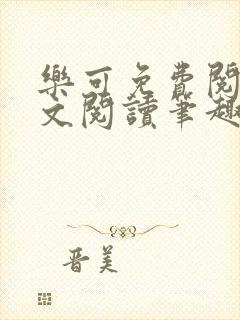 樂可免費閱
文閱讀筆趣
晋美